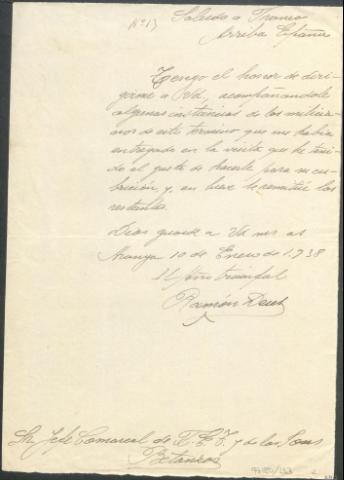 Nº 13
Saludo a Franco
Arriba España
Tengo el honor de diri-
girme a Vd, acompañandole
algunas instancias de los milicia
nos de este termino que me habia
entregado en la visita que he teni-
do el gusto de hacerle para su cu-
brición, y en breve le remitiré las
restantes.
Dios guarde a Vd ms as
Aranga 10 de Enero de 1.938
II Año triunfal
Ramón
Sr. Jefe Comarcal de F. E. T. y de las Jons
Betanzos